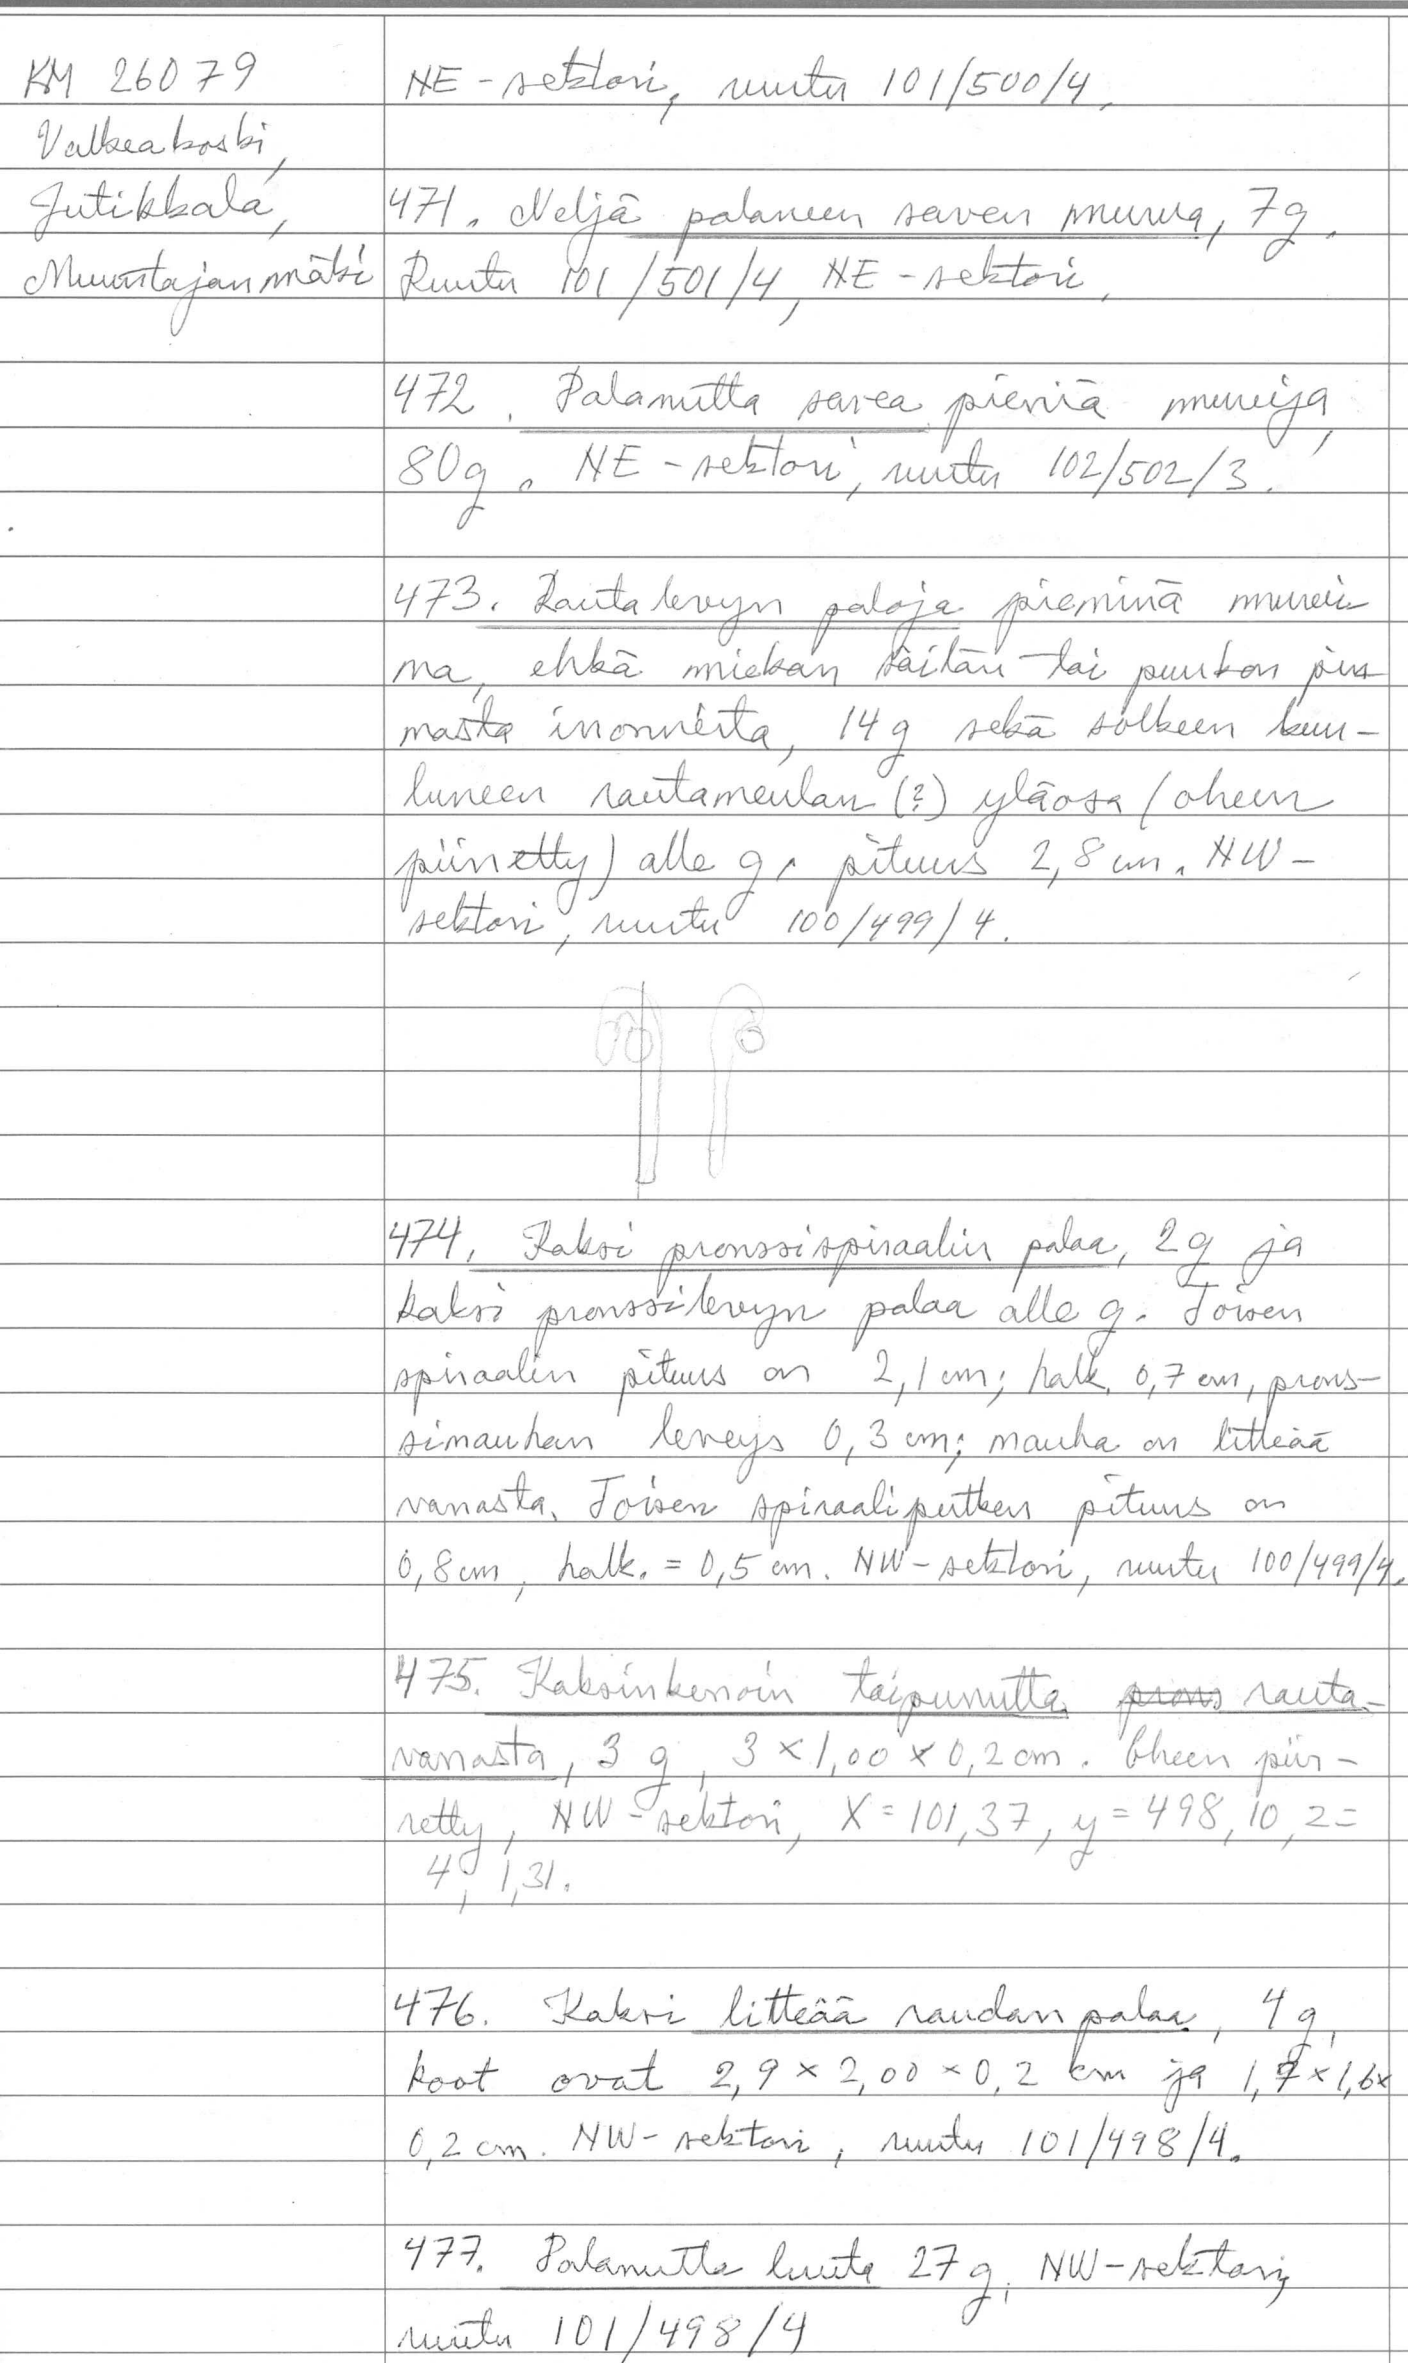 KM 26079
Valkeakoski,
Jutikkala,
Muuntajanmäki
NE-sektori, ruutu 101/500/4.
471. Neljä palaneen saven murua, 7g.
Ruutu 101/501/4, NE-sektori.
472. Palanutta savea pieniä muruja,
80g. NE-sektori, ruutu 102/502/3.
473. Rautalevyn paloja pieninä murui-
na, ehkä miekan säilän tai puukon pin
nasta irronneita, 14 g sekä solkeen kuu-
luneen rautaneulan (?) yläosa (oheen
piirretty) alle g, pituus 2,8 cm. NW-
sektori, ruutu 100/499/4.
474. Kaksi pronssispiraalin palaa, 2g ja
kaksi pronssilevyn palaa alle g. Toisen
spiraalin pituus on 2,1 cm; halk. 0,7 cm, prons-
sinauhan leveys 0,3 cm; nauha on litteää
vanasta. Toisen spiraaliputken pituus on
0,8 cm, halk. = 0,5 cm. NW-sektori, ruutu 100/499/4.
475. Kaksinkerroin taipunutta prons rauta-
vanasta, 3 g, 3 × 1,00 × 0,2 cm. Oheen piir-
retty, NW-sektori, X = 101,37, y = 498,10, z =
4, 1,31.
476. Kaksi litteää raudan palaa, 4 g,
koot ovat 2,9 × 2,00 × 0,2 cm ja 1,7 × 1,6 ×
0,2 cm. NW-sektori, ruutu 101/498/4.
477. Palanutta luuta 27 g, NW-sektori,
ruutu 101/498/4